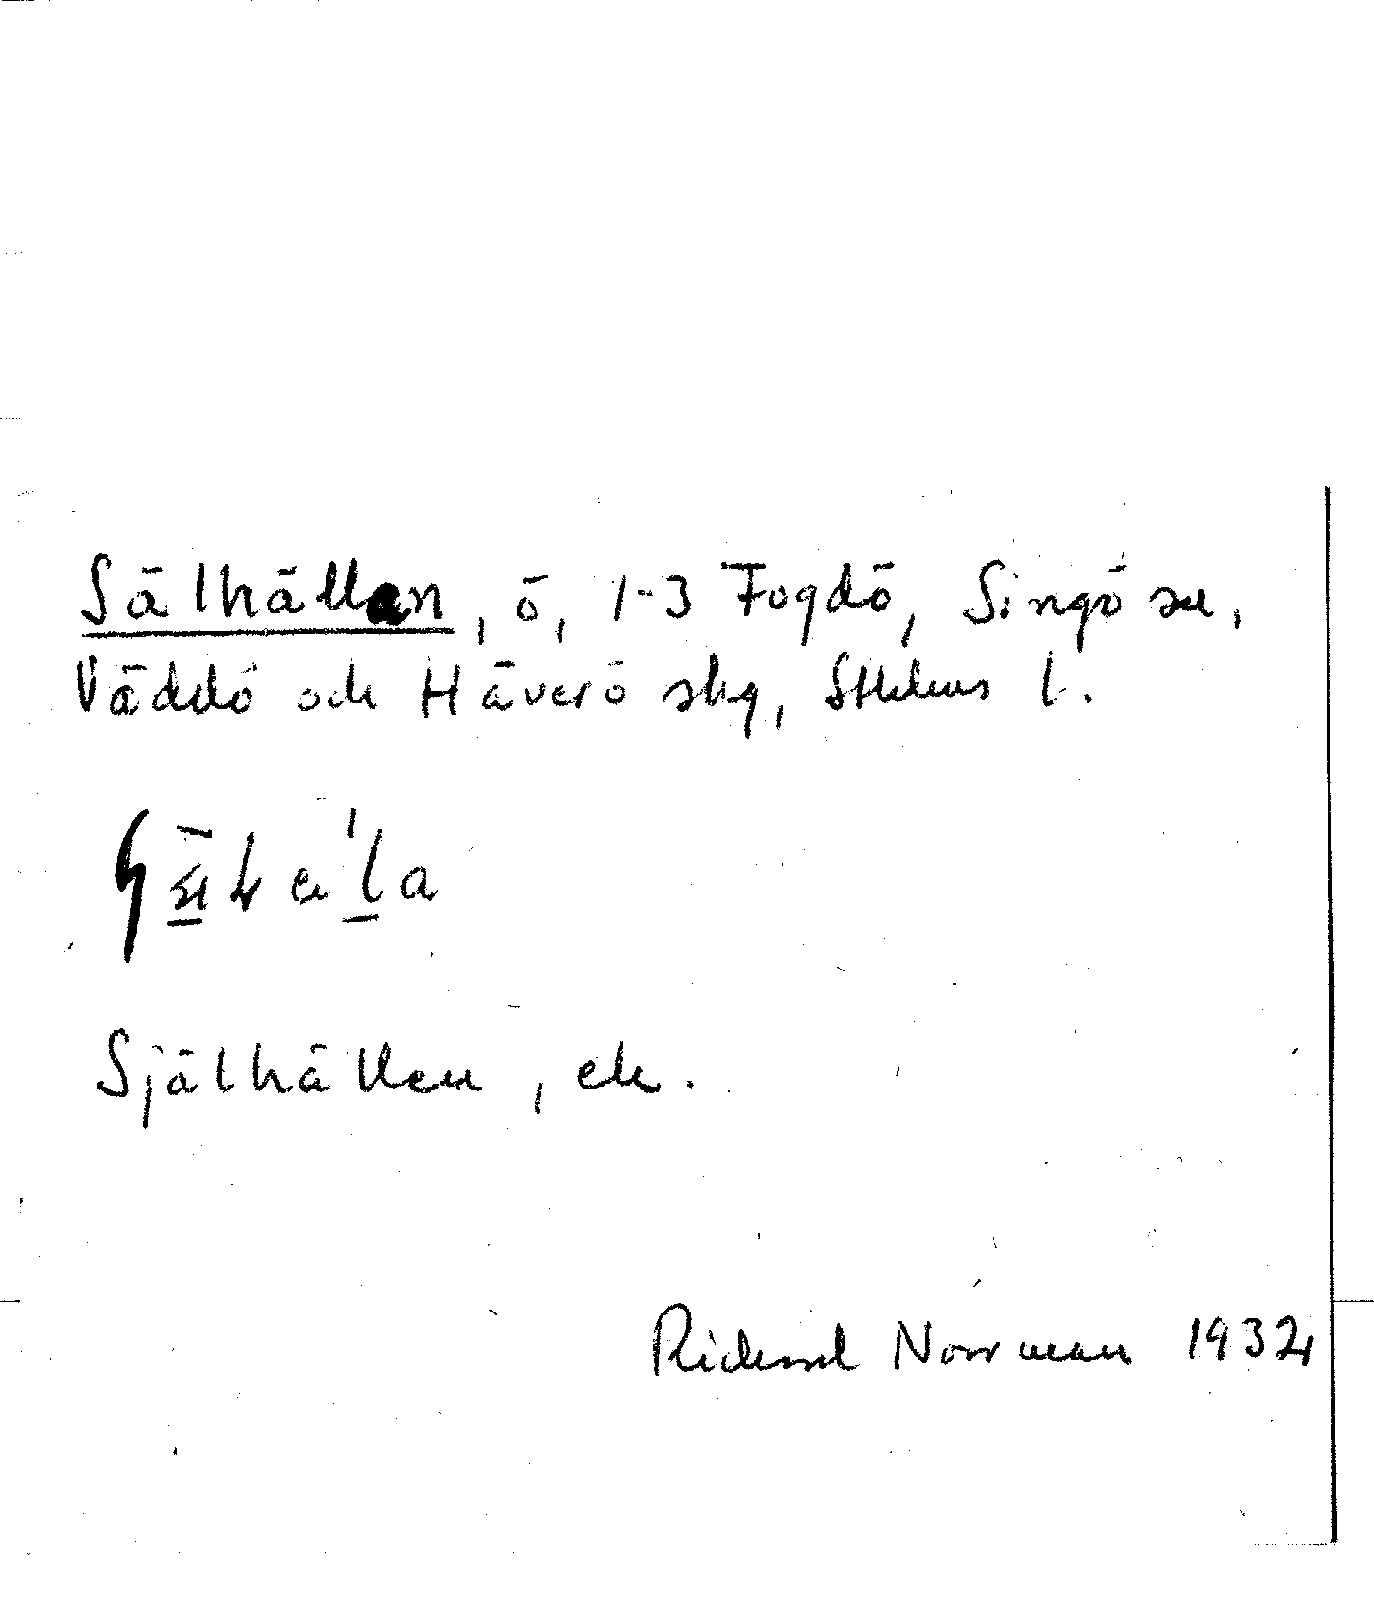 Sälhällan, ö, 1-3 Fogdö, Singö sn,
Väddö och Häverö skg, Sthlms l.
Själhällen, ek.
Richard Norrman 1932